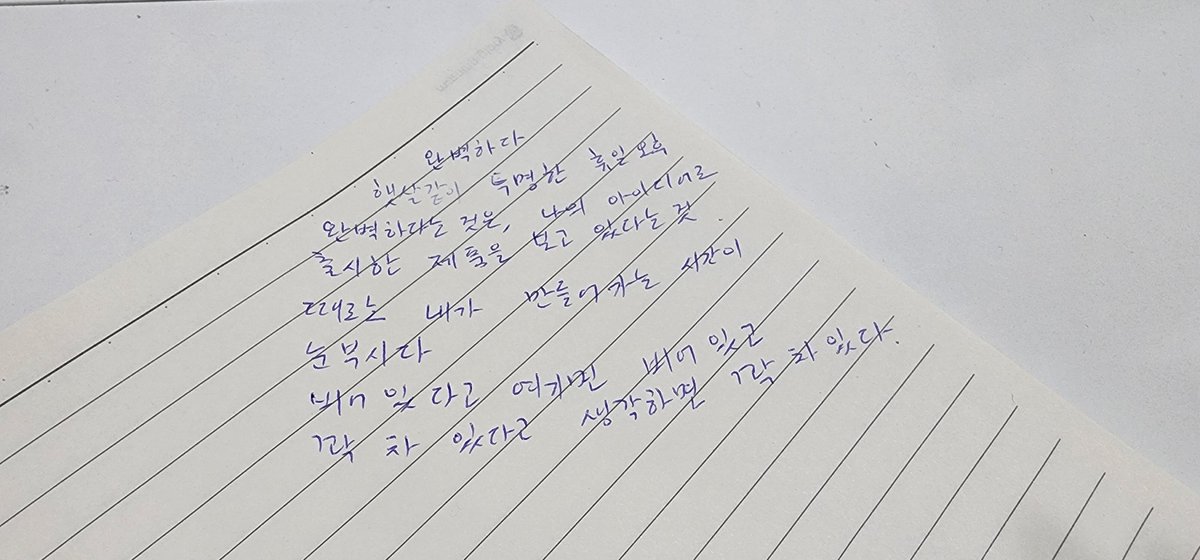 완벽하다
햇살같이 투명한 휴일 오후
완벽하다는 것은, 나의 아이디어로
출시한 제품을 보고 있다는 것.
때로는 내가 만들어가는 시간이
눈부시다
비어 있다고 여기면 비어 있고
꽉 차 있다고 생각하면 꽉 차 있다.